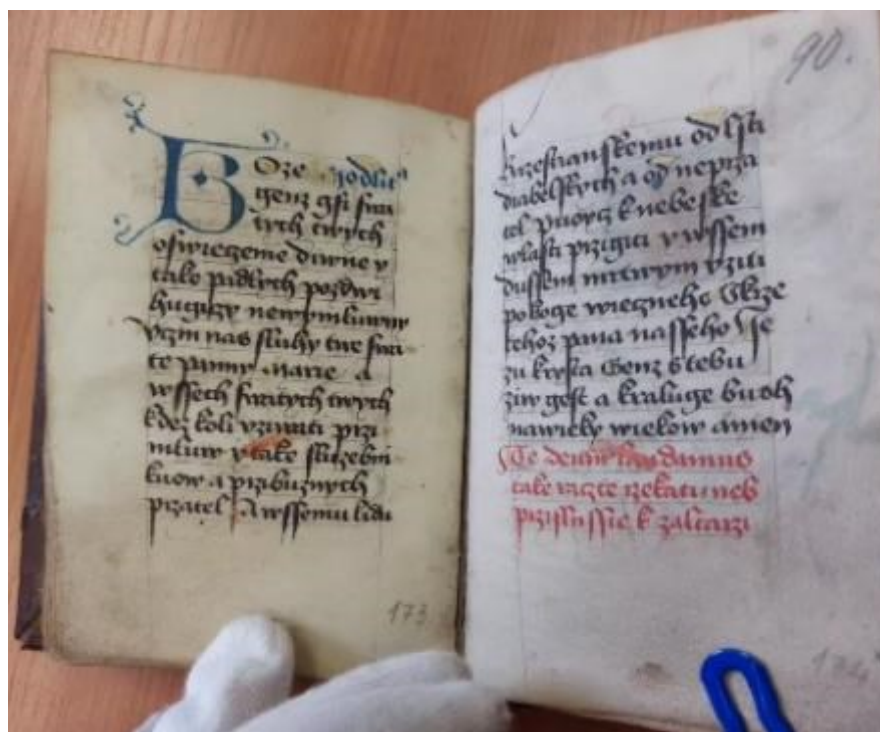 Boze
genz gsi swa
tych twych
oswieczeme diwne y
take podlych pozdwi
hugiczy newymluwny
Uczin nas sluhy twe swa
te panny marie a
wssech swatych twych
kdez koli wzinati przi
mluw y take sluzebni
kuow a przibuznych
przatel A wssemu lidu
173
90.
krzestianskemu od lsti
diabelskych a od neprza
tel puoycz k nebeske
wlasti przigiti y wssem
dussem mrtwym vziti
pokoge wieczneho Skrze
tehoz pana nasseho Je
zu krysta Genz s tebu
ziw gest a kraluge buoh
nawieky wiekow amen
Te deum laudamus
take rziekati neb
przislussie k zaltarzi